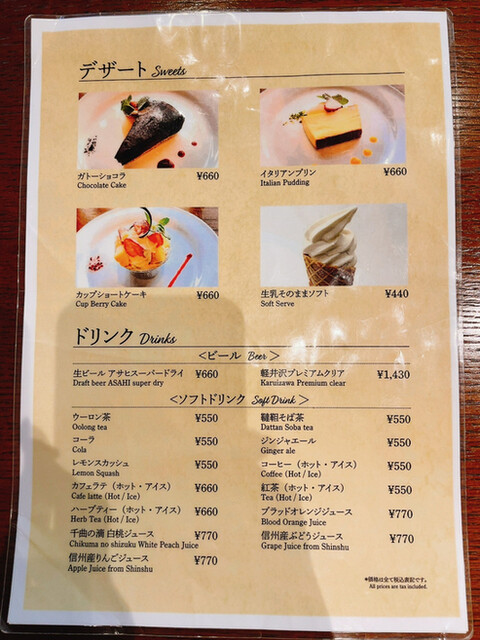 デザート Sweets
ガトーショコラ ¥660
Chocolate Cake
イタリアンプリン ¥660
Italian Pudding
カップショートケーキ ¥660
Cup Berry Cake
生乳そのままソフト ¥440
Soft Serve
ドリンク Drinks
＜ビール Beer＞
生ビール アサヒスーパードライ ¥660
Draft beer ASAHI super dry
軽井沢プレミアムクリア ¥1,430
Karuizawa Premium clear
＜ソフトドリンク Soft Drink＞
ウーロン茶 ¥550
Oolong tea
韃靼そば茶 ¥550
Dattan Soba tea
コーラ ¥550
Cola
ジンジャエール ¥550
Ginger ale
レモンスカッシュ ¥550
Lemon Squash
コーヒー（ホット・アイス） ¥550
Coffee (Hot / Ice)
カフェラテ（ホット・アイス） ¥660
Cafe latte (Hot / Ice)
紅茶（ホット・アイス） ¥550
Tea (Hot / Ice)
ハーブティー（ホット・アイス） ¥660
Herb Tea (Hot / Ice)
ブラッドオレンジジュース ¥770
Blood Orange Juice
千曲の滴 白桃ジュース ¥770
Chikuma no shizuku White Peach Juice
信州産ぶどうジュース ¥770
Grape Juice from Shinshu
信州産りんごジュース ¥770
Apple Juice from Shinshu
*価格は全て税込表記です。
All prices are tax included.